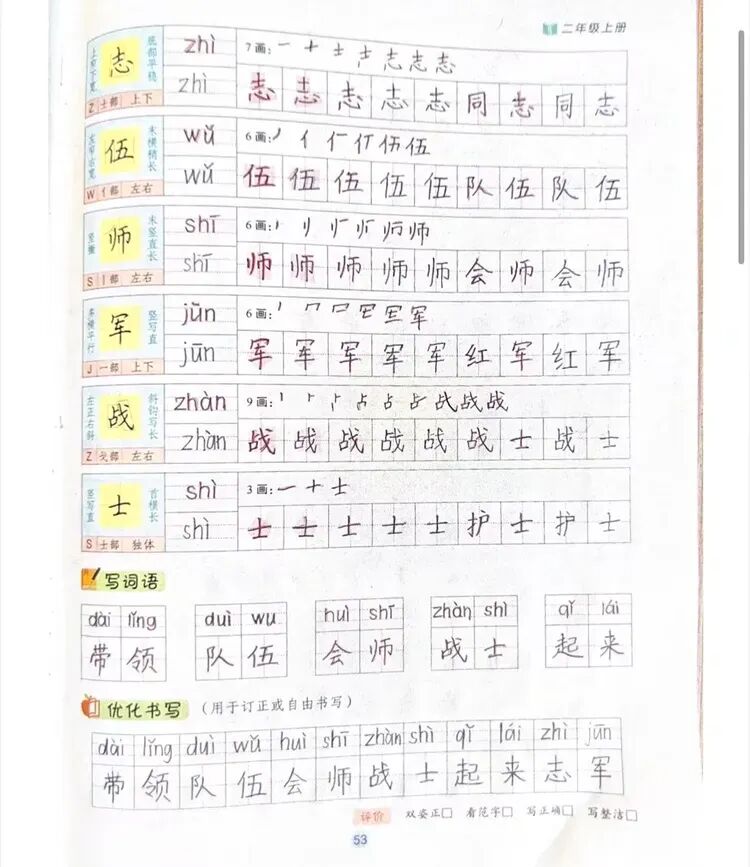 二年级上册
上窄下宽 志 底部平稳 zhì 7画: 一 十 士 志 志 志 志
Z 士部 上下 zhì 志 志 志 志 志 同 志 同 志
左窄右宽 伍 末横稍长 wǔ 6画: 丿 亻 仁 伍 伍
W 亻部 左右 wǔ 伍 伍 伍 伍 伍 队 伍 队 伍
竖撇 师 末竖直长 shī 6画: 师 师
S 丨部 左右 shī 师 师 师 师 师 会 师 会 师
多横平行 军 竖写直 jūn 6画: 军
J 冖部 上下 jūn 军 军 军 军 军 红 军 红 军
左正右斜 战 斜钩写长 zhàn 9画: 丨 卜 占 占 战 战 战
Z 戈部 左右 zhàn 战 战 战 战 战 战 士 战 士
竖写直 士 首横长 shì 3画: 一 十 士
S 士部 独体 shì 士 士 士 士 士 护 士 护 士
写词语
dài lǐng duì wu huì shī zhàn shì qǐ lái
带 领 队 伍 会 师 战 士 起 来
优化书写 (用于订正或自由书写)
dài lǐng duì wǔ huì shī zhàn shì qǐ lái zhì jūn
带 领 队 伍 会 师 战 士 起 来 志 军
评价 双姿正□ 看范字□ 写正确□ 写整洁□
53